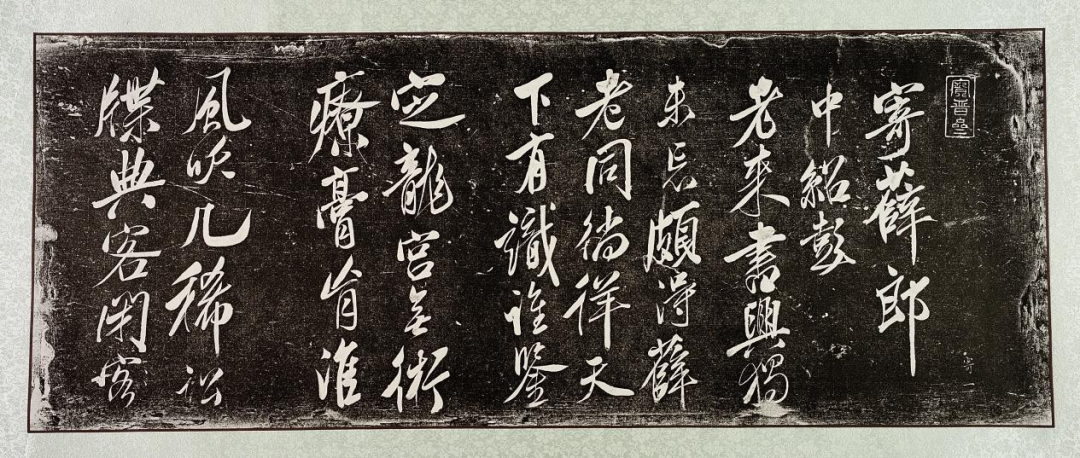 寄薛郎
中紹彭
老来書興獨
未忘頗得薛
老同徜徉天
下有識誰鑒
定龍宮無術
療膏肓淮
風吹几稀訟
牒典客